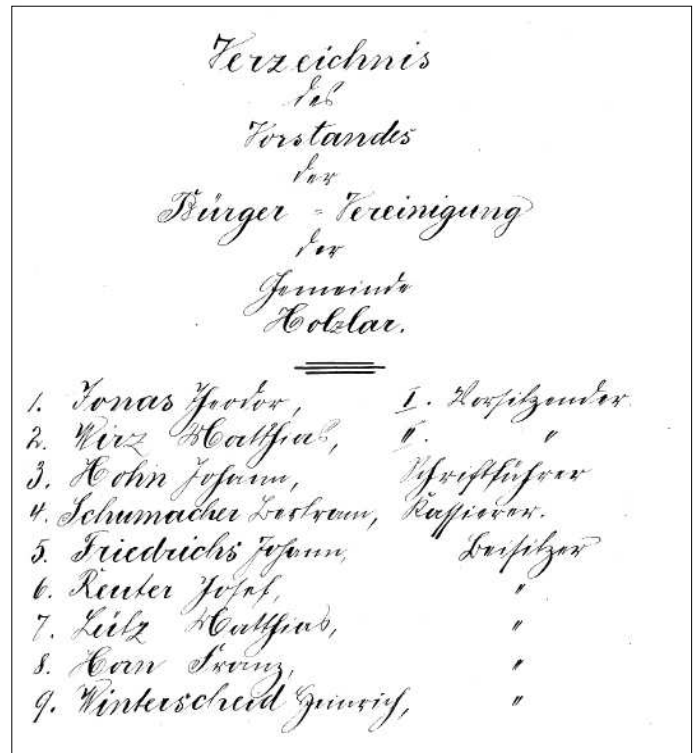 Verzeichnis
des
Vorstandes
der
Bürger = Vereinigung
der
Gemeinde
Holzlar.
1. Jonas Theodor, I. Vorsitzender
2. Wirz Matthias, II. "
3. Hohn Johann, Schriftführer
4. Schumacher Bertram, Kassierer.
5. Friedrichs Johann, Beisitzer
6. Reuter Josef, "
7. Lülz Matthias, "
8. Han Franz, "
9. Winterscheid Heinrich, "